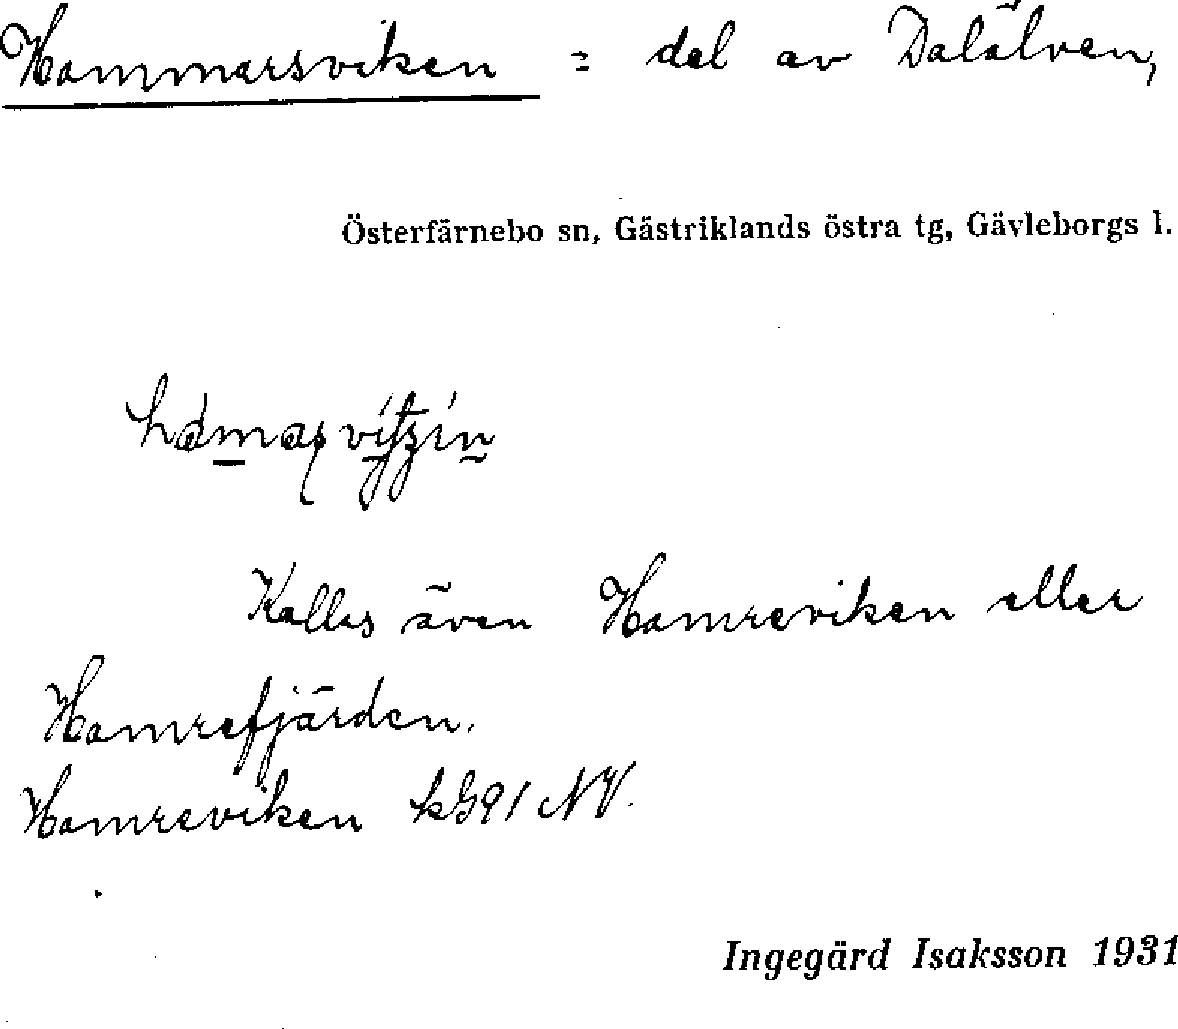 Hammarsviken = del av Dalälven,
Österfärnebo sn, Gästriklands östra tg, Gävleborgs l.
Kallas även Hamreviken eller
Hamrefjärden.
Hamreviken kG91 NV.
Ingegärd Isaksson 1931